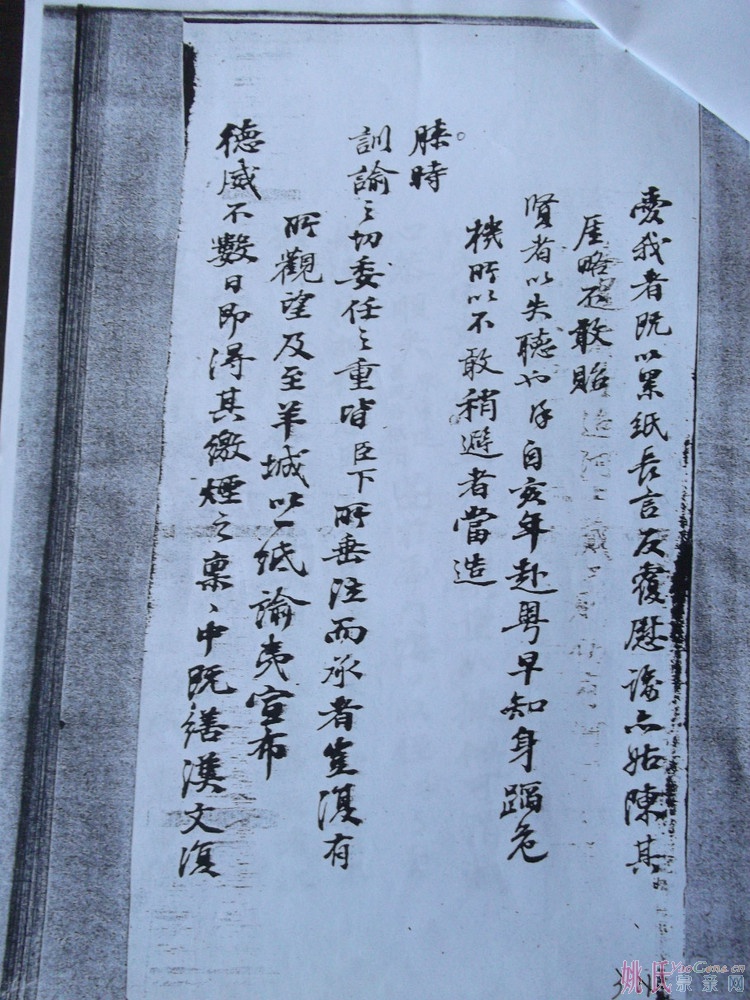 愛我者既以累紙長言反覆慰諭亦姑陳其
厓略礎敢貽
賢者以失聽也徐自亥年赴粵早知身蹈危
機所以不敢稍避者當造
膝時
訓諭之切委任之重皆臣下所垂泣而承者豈復有
所觀望及至羊城以一紙諭夷宣布
德威不數日即得其繳煙之稟〻中既繕漢文復
姚氏宗亲网
YaoGens.cn